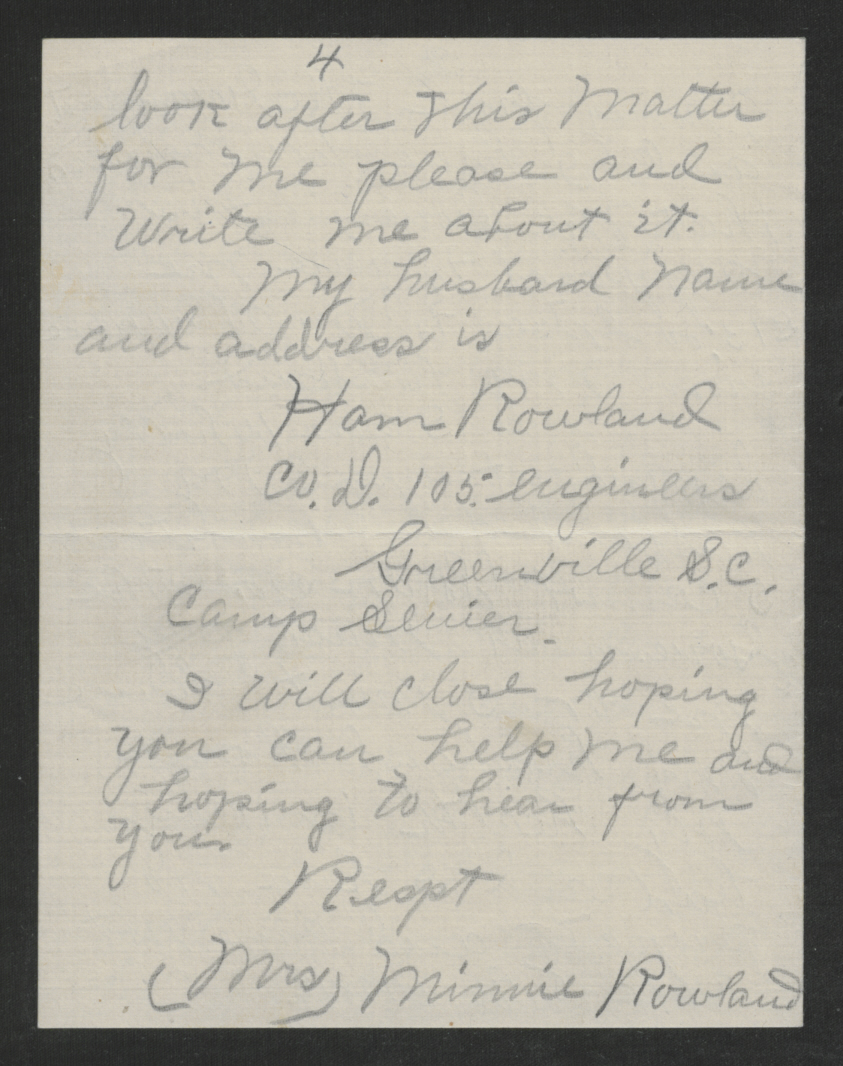 4
look after this Matter
for Me please and
Write me about it.
My husband Name
and address is
Ham Rowland
Co. D. 105. engineers
Greenville S.C.
Camp Sevier.
I will close hoping
you can help Me and
hoping to hear from
you.
Respt
(Mrs) Minnie Rowland